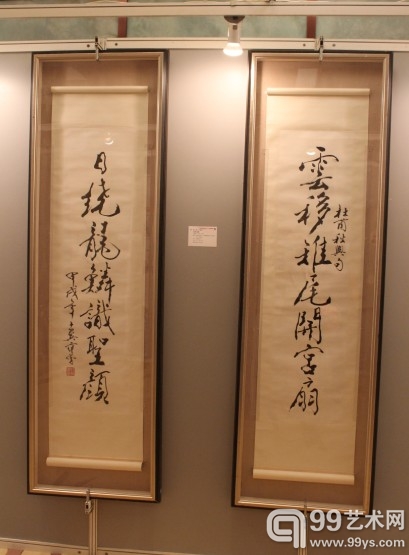 雲移雉尾開宮扇
杜甫秋興句
日繞龍鱗識聖顏
甲戌年
99艺术网
www.99ys.com